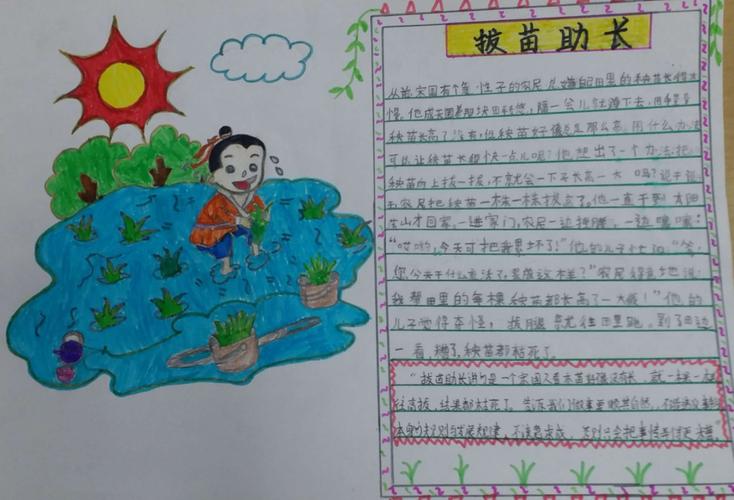 拔苗助长
从前宋国有个急性子的农民总嫌自己田里的秧苗长得太
慢,他成天围着那块田转悠,隔一会儿就蹲下去,用手量量
秧苗长高了没有,但秧苗好像总是那么高。用什么办法
可以让秧苗长得快一点儿呢?他想出了一个办法:把
秧苗向上拔一拔,不就会一下子长高一大 吗?说干就
农民把秧苗一棵一棵拔高了。他一直干到太阳
落山才回家,一进家门,农民一边捶腰,一边嚷嚷:
“哎哟,今天可把我累坏了!”他的儿子忙问:“爸,
你今天干什么重活了,累成这样?”农民得意地说:
“我帮田里的每棵秧苗都长高了一大截!”他的
儿子觉得奇怪,拔腿就往田里跑。到了田边
一看,糟了,秧苗都枯死了。
“拔苗助长讲的是一个宋国人看禾苗 没有长,就一棵一棵
往高拔,结果都枯死了。告诉我们做事要顺其自然,不能违反事物
本身的规则与发展规律,不该急于求成,否则只会把事情弄得更糟”